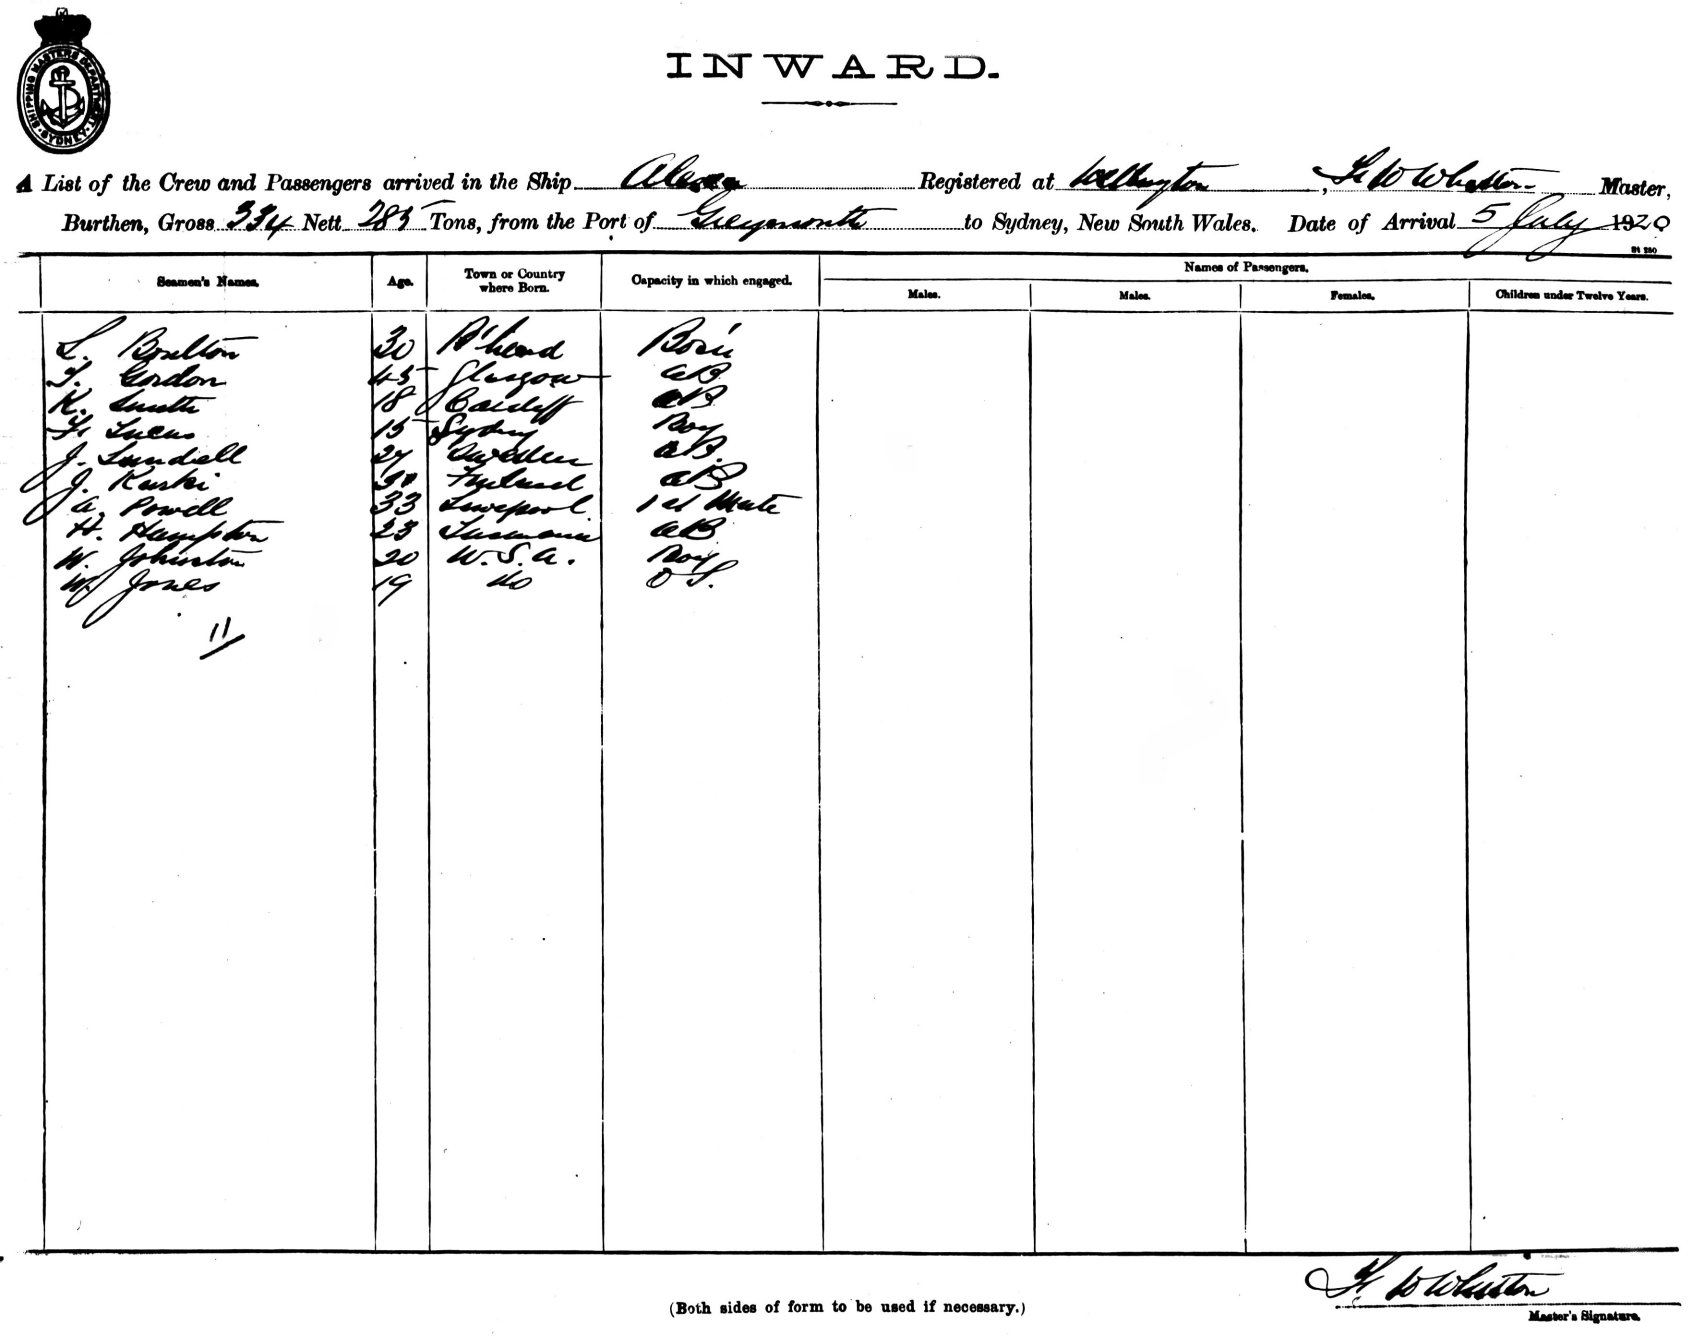 SHIPPING MASTERS DEPARTMENT SYDNEY
INWARD.
A List of the Crew and Passengers arrived in the Ship Registered at Wellington, F W Whatton Master,
Burthen, Gross 334 Nett 285 Tons, from the Port of Greymouth to Sydney, New South Wales. Date of Arrival 5 July 1920
Names of Passengers.
Seamen's Names. Age. Town or Country where Born. Capacity in which engaged. Males. Males. Females. Children under Twelve Years.
L. Boulton 30 B'head Bosn
T. Gordon 45 Glasgow AB
K. Smith 18 Cardiff AB
F. Lucas 15 Sydney Boy
J. Lundell 27 Sweden AB.
J. Kuski Finland AB
A. Powell 33 Liverpool 1st Mate
H. Hampton 23 Tasmania AB
W. Johnston 20 U.S.A. Boy
W. Jones 19 do O S.
11
F. W Whatton
(Both sides of form to be used if necessary.)
Master's Signature.